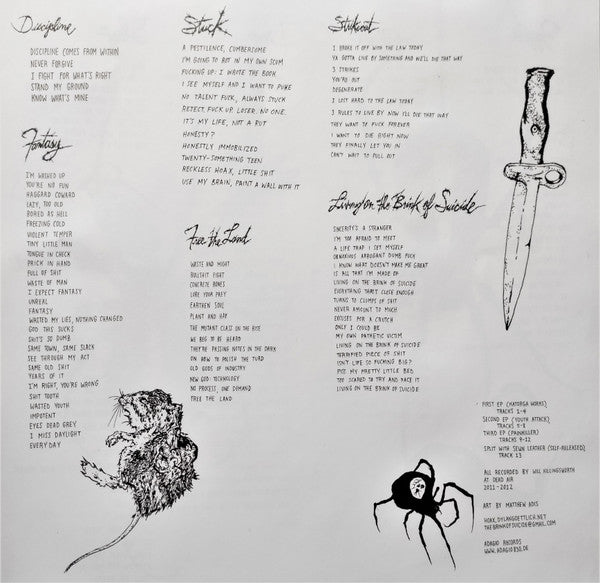 Discipline
DISCIPLINE COMES FROM WITHIN
NEVER FORGIVE
I FIGHT FOR WHAT'S RIGHT
STAND MY GROUND
KNOW WHAT'S MINE
Fantasy
I'M WASHED UP
YOU'RE NO FUN
HAGGARD COWARD
LAZY, TOO OLD
BORED AS HELL
FREEZING COLD
VIOLENT TEMPER
TINY LITTLE MAN
TONGUE IN CHECK
PRICK IN HAND
FULL OF SHIT
WASTE OF MAN
I EXPECT FANTASY
UNREAL
FANTASY
WASTED MY LIES, NOTHING CHANGED
GOD THIS SUCKS
SHIT'S SO DUMB
SAME TOWN, SAME SLACK
SEE THROUGH MY ACT
SAME OLD SHIT
YEARS OF IT
I'M RIGHT, YOU'RE WRONG
SHIT TOOTH
WASTED YOUTH
IMPOTENT
EYES DEAD GREY
I MISS DAYLIGHT
EVERY DAY
Stuck
A PESTILENCE, CUMBERSOME
I'M GOING TO ROT IN MY OWN SCUM
FUCKING UP: I WROTE THE BOOK
I SEE MYSELF AND I WANT TO PUKE
NO TALENT FUCK, ALWAYS STUCK
REJECT. FUCK UP. LOSER. NO ONE.
IT'S MY LIFE, NOT A PUT
HONESTY?
HONESTLY IMMOBILIZED
TWENTY-SOMETHING TEEN
RECKLESS HOAX, LITTLE SHIT
USE MY BRAIN, PAINT A WALL WITH IT
Free the Land
WASTE AND MIGHT
BULLSHIT FIGHT
CONCRETE BONES
LURE YOUR PREY
EARTHEN SOIL
PLANT AND
THE MUTANT CLASS ON THE RISE
WE BEG TO BE HEARD
THEY'RE PASSING NOTES IN THE DARK
ON HOW TO POLISH THE TURD
OLD GODS OF INDUSTRY
NEW GOD: TECHNOLOGY
NO PROCESS, ONE DEMAND
FREE THE LAND
Strikeout
I BROKE IT OFF WITH THE LAW TODAY
YA GOTTA LIVE BY SOMETHING AND WE'LL DIE THAT WAY
3 STRIKES
YOU'RE OUT
DEGENERATE
I LOST HARD TO THE LAW TODAY
3 RULES TO LIVE BY NOW I'LL DIE THAT WAY
THEY WANT TO FUCK FOREVER
I WANT TO DIE RIGHT NOW
THEY FINALLY LET YOU IN
CAN'T WAIT TO PULL OUT
Living on the Brink of Suicide
SINCERITY'S A STRANGER
I'M TOO AFRAID TO MEET
A LIFE TRAP I SET MYSELF
OBNOXIOUS ARROGANT DUMB FUCK
I KNOW WHAT DOESN'T MAKE ME GREAT
IS ALL THAT I'M MADE OF
LIVING ON THE BRINK OF SUICIDE
EVERYTHING THAT'S CLOSE ENOUGH
TURNS TO CLUMPS OF SHIT
NEVER AMOUNT TO MUCH
EXCUSES FOR A CRUTCH
ONLY I COULD BE
MY OWN PATHETIC VICTIM
LIVING ON THE BRINK OF SUICIDE
TERRIFIED PIECE OF SHIT
ISN'T LIFE SO FUCKING BIG?
PISS MY PRETTY LITTLE BED
TOO SCARED TO TRY AND FACE IT
LIVING ON THE BRINK OF SUICIDE
FIRST EP (KATORGA WORKS)
TRACKS 1-4
SECOND EP (YOUTH ATTACK)
TRACKS 5-8
THIRD EP (PAINKILLER)
TRACKS 9-12
SPLIT WITH SEWN LEATHER (SELF-RELEASED)
TRACK 13
ALL RECORDED BY WILL KILLINGSWORTH
AT DEAD AIR
2011-2012
ART BY MATTHEW ADIS
HOAX.DYLANGOETTLICH.NET
THEBRINKOFSUICIDE@GMAIL.COM
ADAGIO RECORDS
WWW.ADAGIO830.DE